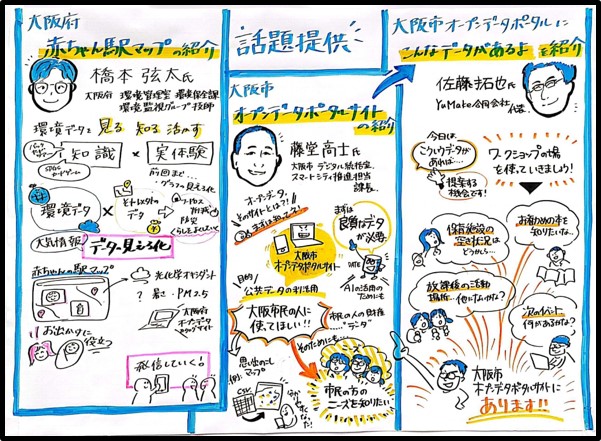 話題提供
大阪府
赤ちゃん駅マップの紹介
橋本 弦太氏
大阪府 環境管理室 環境保全課
環境監視グループ 技師
環境データを見る 知る 活かす
知識 × 実体験
前回まで…
グラフの見える化
環境データ × それ以外のデータ
大気情報 データ見える化
赤ちゃんの駅マップ
光化学オキシダント
暑さ・PM2.5
大阪府
オープンデータ
カタログサイト
お出かけに
役立つ
発信していく!
大阪市
オープンデータポータルサイトの紹介
藤堂高士氏
大阪市 デジタル統括室
スマートシティ推進担当
課長
オープンデータ、
そのサイトとは?!
まず知って
まずは
良質なデータ
が必要
大阪市
オープンデータポータルサイト
DATA
AIの活用
のためにも
目的
公共データの利活用
大阪市民の人に
使ってほしい!!
市民の人の財産
データ
そのためにも…
思い出のこし
マップ
CSV
市民の方の
ニーズを知りたい
大阪市オープンデータポータルに
こんなデータがあるよを紹介
佐藤拓也氏
YuMake合同会社
代表
今日は、
こういうデータが
あれば…
提案する
機会です!
ワークショップの場
を使っていきましょう!
保育施設の
空き状況は
どうかしら…
お勧めの本を
知りたいな。
放課後の活動
場所、他にないかな?
次のイベント
何があるかな?
大阪市
オープンデータポータルサイトに
あります!!